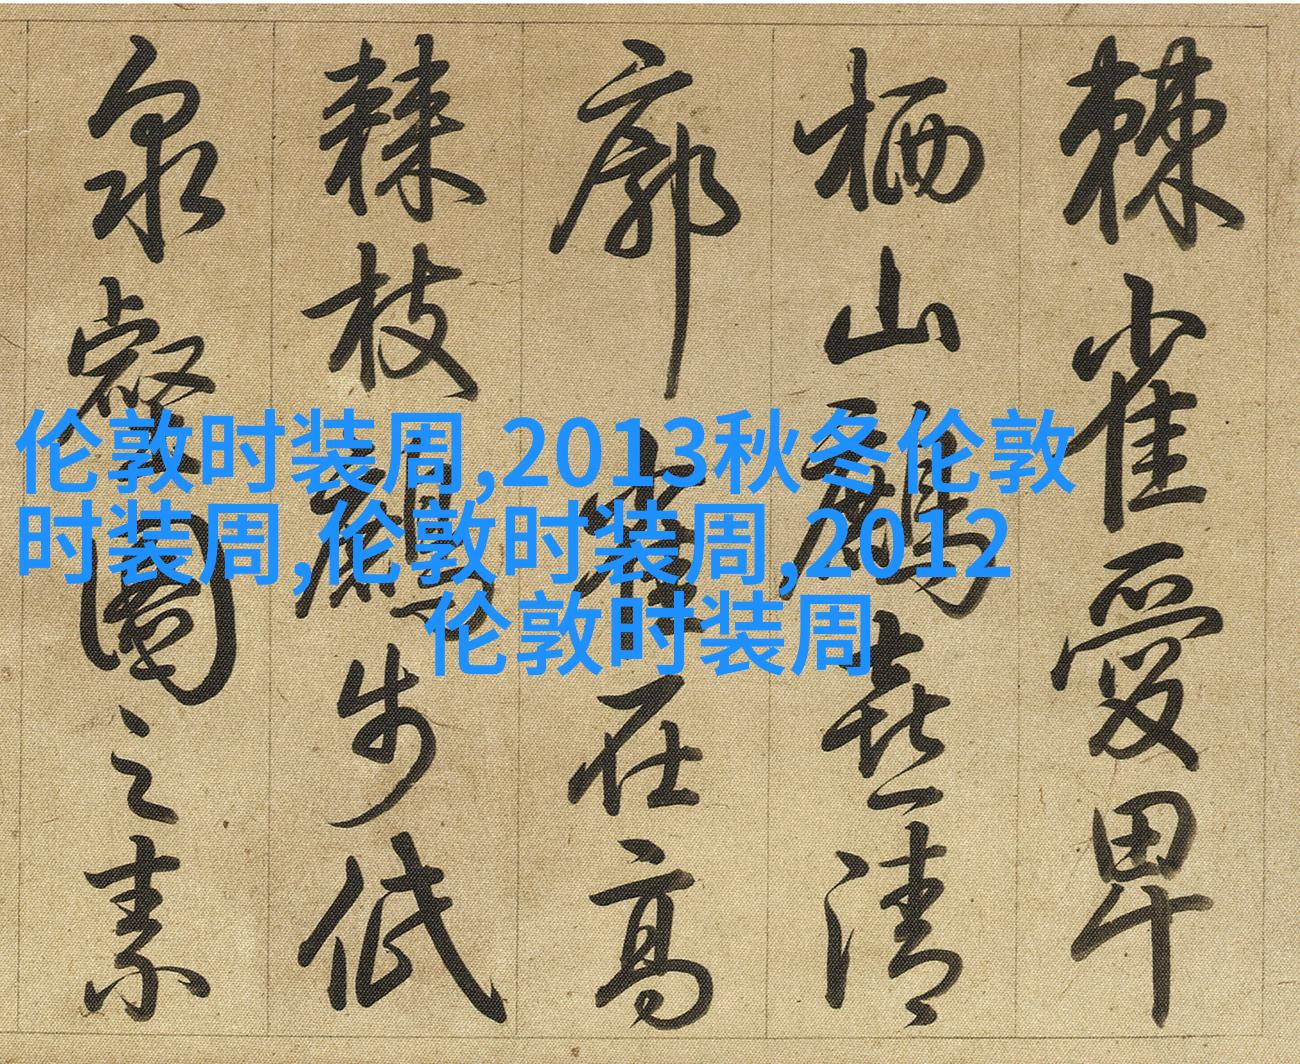 棘雀愛卑
栖山鷓喜清
廓雀在高
棘枝鷓步低
泉壑圖之素
伦敦时装周,2013秋冬伦敦
时装周,伦敦时装周,2012
伦敦时装周